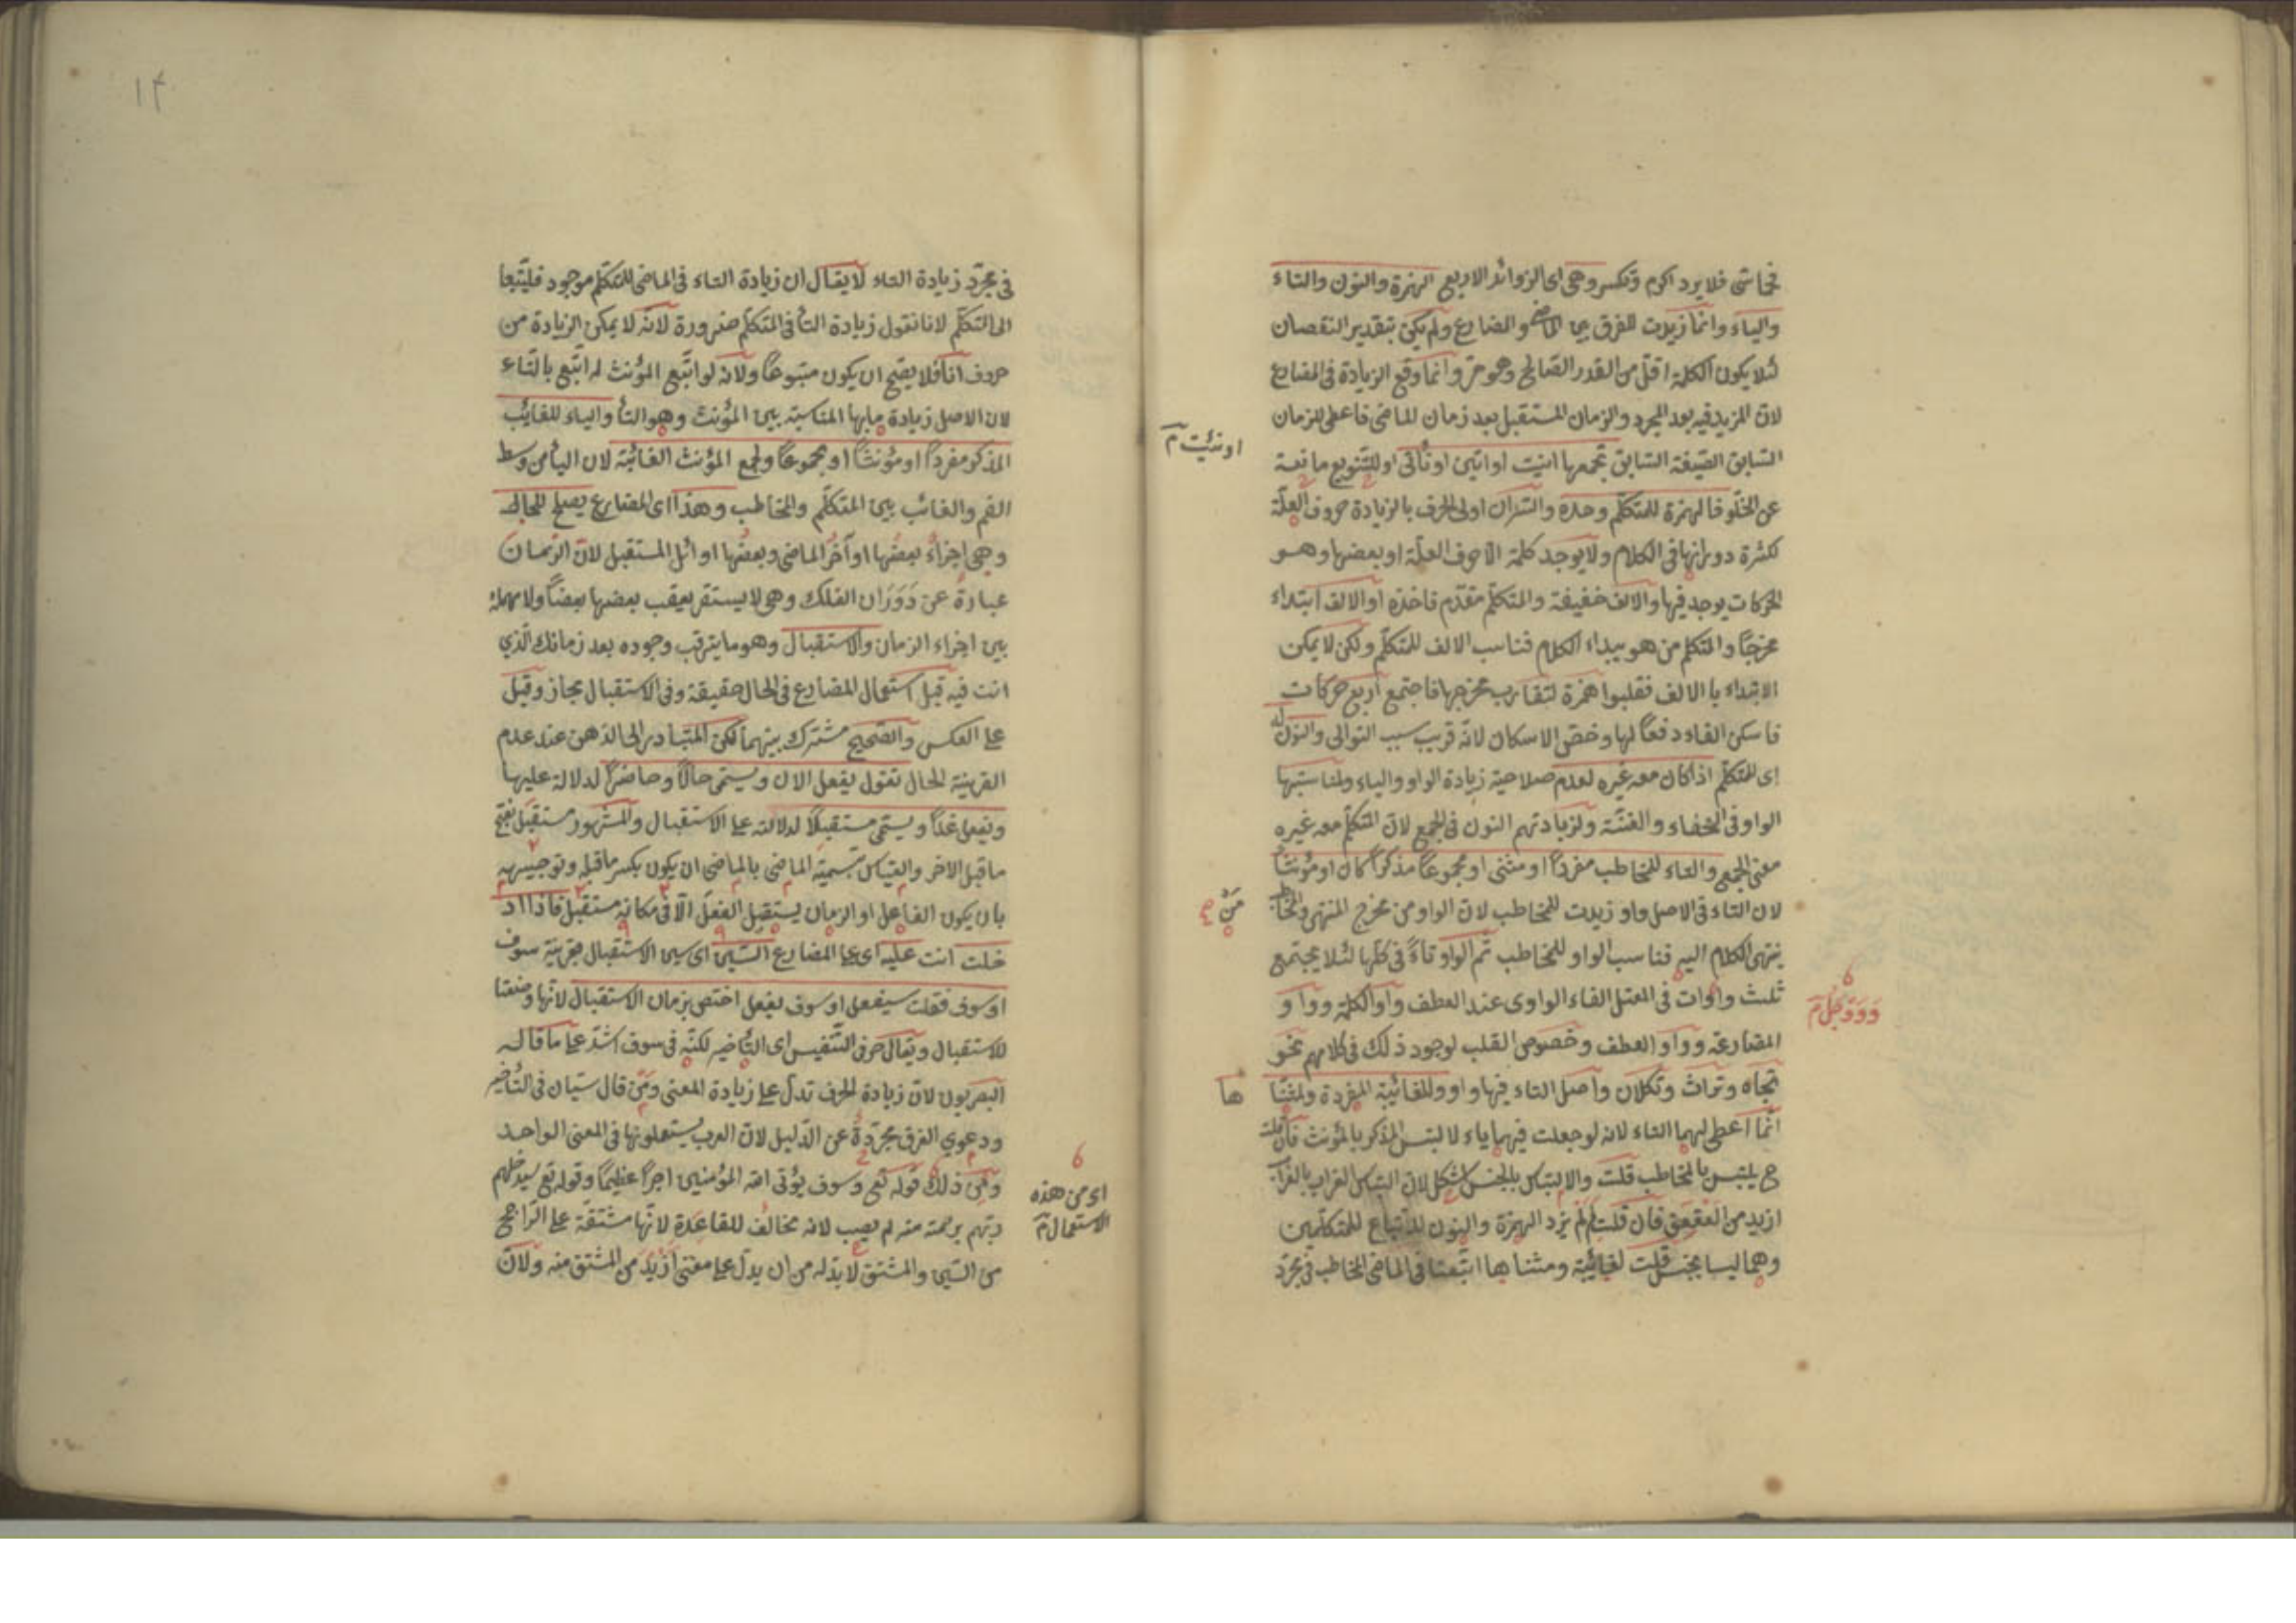 فلا يرد اكرم وتكسر وهى اى الزوائد الاربع الهمزة والنون والتاء
والياء وانما زيدت للفرق بين الماضى والمضارع ولم يكن بتقدير النقصان
لئلا يكون الكلمة اقل من القدر الصالح وهو حرفٌ وانما وقع الزيادة فى المضارع
لان المزيد فيه بعد المجرد والزمان المستقبل بعد زمان الماضى فاعطى للزمان
السابق الصيغة السابق تجمعها انيت او اتين او نأتى او للتنويع مانعة
اونئيت م
عن الخلو فالهمزة للمتكلم وحده والتزان اولى الحرف بالزيادة حروف العلة
لكثرة دورانها فى الكلام ولا يوجد كلمة الا حرف العلة او بعضها وهو
الحركات يوجد فيها والالف خفيفة والمتكلم مقدم فاخذه او الالف ابتداء
مخرجًا والمتكلم من هو يبداء الكلام فناسب الالف للمتكلم ولكن لا يمكن
الابتداء با الالف فقلبوا همزة لتقارب مخرجها فاجتمع اربع حركات
فاسكن الفاء دفعًا لها وخص الاسكان لانه قريب سبب التوالى والنون له
اى للمتكلم اذا كان معه غيره لعدم صلاحية زيادة الواو والياء ولمناسبتها
الواو فى الخفاء والغنة ولزيادتهم النون فى الجمع لان المتكلم معه غيره
معنى الجمع والتاء للمخاطب مفردًا او مثنى او مجموعًا مذكرًا كان او مؤنثًا
لان التاء فى الاصل واو زيدت للمخاطب لان الواو من مخرج المنتهى
مَنْ صح
ينتهى الكلام اليه فناسب الواو للمخاطب ثم الواو تاءً فى كلها لئلا يجتمع
ثلث واوات فى المعتل الفاء الواوى عند العطف واو الكلمة وواو
وَوَوَجَلَ م
المضارعة وواو العطف وخصوص القلب لوجود ذلك فى كلامهم نحو
تجاه وتراث وتكلان واصل التاء فيها واو وللغائبة المفردة ولمثنا ها
انما اعطى لهما التاء لانه لو جعلت فيهما ياء لالتبس المذكر بالمؤنث فان قلت
ح يلتبس بالمخاطب قلت والالتباس بالجنس اشكل لان التباس الغراب بالغراب
ازيد من العقعق فان قلت لم لم يزد الهمزة والنون للاتباع للمتكلمين
وهما ليسا بجنس قلت لغائبة ومثناها اتبعتا فى الماضى المخاطب فى مجرد
١٤
فى مجرد زيادة التاء لا يقال ان زيادة التاء فى الماضى للمتكلم موجود فليتبعا
الى المتكلم لانا نقول زيادة التأ فى المتكلم ضرورة لانه لا يمكن الزيادة من
حروف انا فلا يصح ان يكون متبوعًا ولانه لو اتبع المؤنث له اتبع بالتاء
لان الاصل زيادة مابها المناسبة بين المؤنث وهو التأ والياء للغائب
المذكر مفردًا او مؤنثًا او مجموعًا ولجمع المؤنث الغائبة لان اليأ من وسط
الفم والغائب بين المتكلم والمخاطب وهذا اى المضارع يصلح للحال
وهى اجزاءٌ بعضها اواخر الماضى وبعضها اوائل المستقبل لان الزمان
عبارة عن دَوَران الفلك وهى لا يستقر يعقب بعضها بعضًا ولا مهملة
بين اجزاء الزمان والاستقبال وهو ما يترقب وجوده بعد زمانك الذي
انت فيه قيل استعمال المضارع فى الحال حقيقة وفى الاستقبال مجاز وقيل
على العكس والصحيح مشترك بينهما لكن المتبادر الى الذهن عند عدم
القرينة الحال تقول يفعل الان ويسمى حالًا وحاضرًا لدلالة عليها
ويفعل غدًا ويسمى مستقبلًا لدلالته على الاستقبال والمشهور مستقبل بفتح
ما قبل الاخر والقياس بتسمية الماضى بالماضى ان يكون بكسر ما قبله وتوجيهه
بان يكون الفاعل او الزمان يستقبل الفعل الا فى مكانه مستقبل فاذا اد
خلت انت عليه اى على المضارع السين اى سين الاستقبال بقرينة سوف
او سوف فقلت سيفعل او سوف يفعل اختص بزمان الاستقبال لانها وضعتا
للاستقبال ويقال حرفى التنفيس اى التأخير لكنه فى سوف اشد على ما قاله
البصريون لان زيادة الحرف تدل على زيادة المعنى ومن قال سيان فى التأخير
ودعوي الفرق مجردةً عن الدليل لان العرب يستعملونها فى المعنى الواحد
ومن ذلك قوله تع وسوف يؤتى الله المؤمنين اجرًا عظيمًا وقوله تع سيدخلهم
اى من هذه
الاستعمال م
ربهم برحمة منه لم يصب لانه مخالف للقاعدة لانها مشتقة على الراجح
من السين والمشتق لا بد له من ان يدل على معنى ازيد من المشتق منه ولان